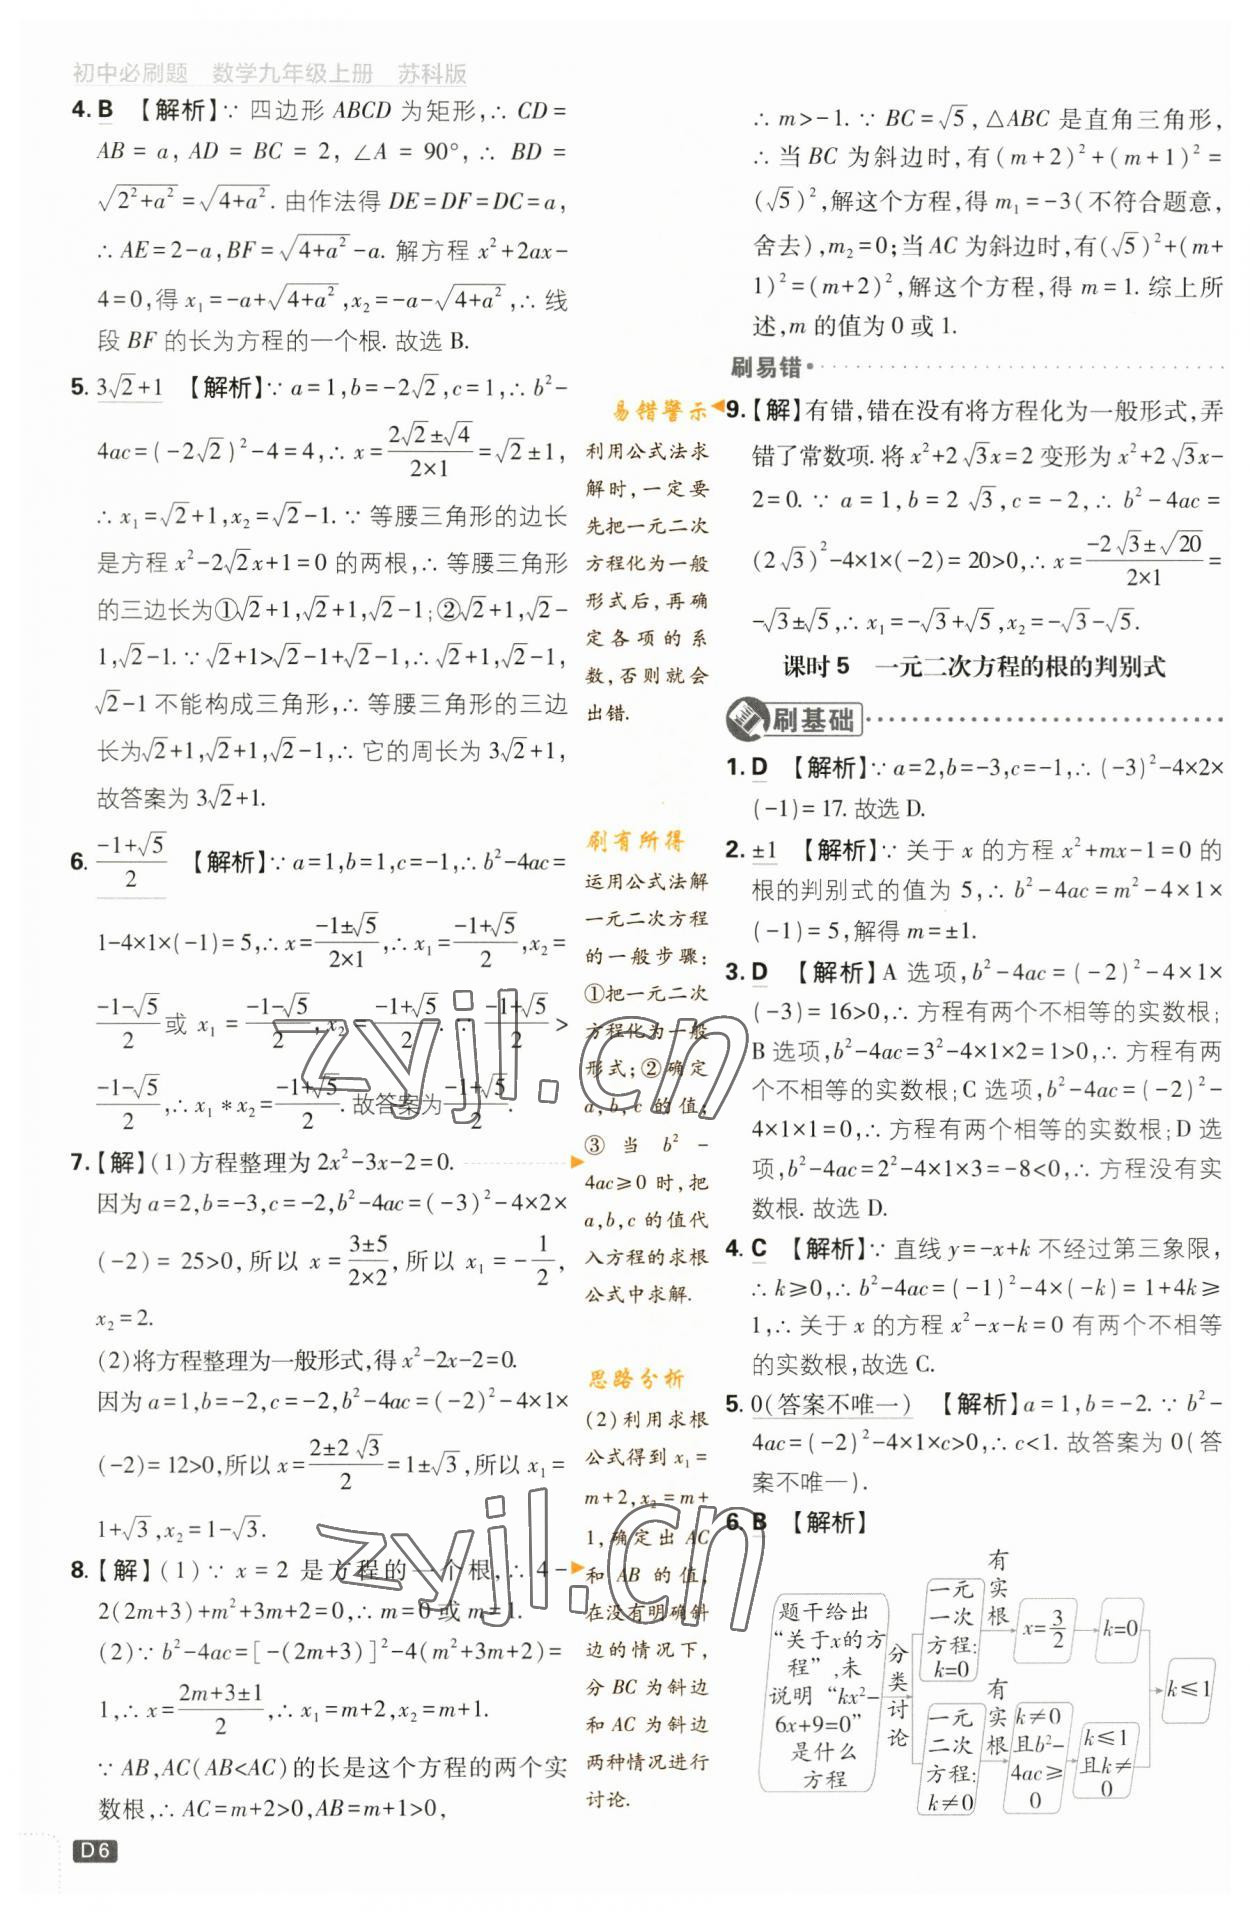 初中必刷题 数学九年级上册 苏科版
4. B 【解析】∵ 四边形 ABCD 为矩形,∴ CD=
AB=a, AD=BC=2, ∠A=90°,∴ BD=
√(2²+a²)=√(4+a²). 由作法得 DE=DF=DC=a,
∴ AE=2-a,BF=√(4+a²)-a. 解方程 x²+2ax-
4=0,得 x₁=-a+√(4+a²),x₂=-a-√(4+a²),∴ 线
段 BF 的长为方程的一个根. 故选 B.
5. 3√2+1 【解析】∵ a=1,b=-2√2,c=1,∴ b²-
4ac=(-2√2)²-4=4,∴ x=(2√2±√4)/(2×1)=√2±1,
∴ x₁=√2+1,x₂=√2-1. ∵ 等腰三角形的边长
是方程 x²-2√2x+1=0 的两根,∴ 等腰三角形
的三边长为①√2+1,√2+1,√2-1;②√2+1,√2-
1,√2-1. ∵√2+1>√2-1+√2-1,∴ √2+1,√2-1,
√2-1 不能构成三角形,∴ 等腰三角形的三边
长为√2+1,√2+1,√2-1,∴ 它的周长为 3√2+1,
故答案为 3√2+1.
6. (-1+√5)/2 【解析】∵ a=1,b=1,c=-1,∴ b²-4ac=
1-4×1×(-1)=5,∴ x=(-1±√5)/(2×1),∴ x₁=(-1+√5)/2,x₂=
(-1-√5)/2 或 x₁=(-1-√5)/2,x₂=(-1+√5)/2. ∵ (-1+√5)/2>
(-1-√5)/2,∴ x₁*x₂=(-1+√5)/2. 故答案为(-1+√5)/2.
7.【解】(1)方程整理为 2x²-3x-2=0.
因为 a=2,b=-3,c=-2,b²-4ac=(-3)²-4×2×
(-2)=25>0,所以 x=(3±5)/(2×2),所以 x₁=-1/2,
x₂=2.
(2)将方程整理为一般形式,得 x²-2x-2=0.
因为 a=1,b=-2,c=-2,b²-4ac=(-2)²-4×1×
(-2)=12>0,所以 x=(2±2√3)/2=1±√3,所以 x₁=
1+√3,x₂=1-√3.
8.【解】(1)∵ x=2 是方程的一个根,∴ 4-
2(2m+3)+m²+3m+2=0,∴ m=0 或 m=1.
(2)∵ b²-4ac=[-(2m+3)]²-4(m²+3m+2)=
1,∴ x=(2m+3±1)/2,∴ x₁=m+2,x₂=m+1.
∵ AB,AC(AB<AC)的长是这个方程的两个实
数根,∴ AC=m+2>0,AB=m+1>0,
D6
易错警示
利用公式法求
解时,一定要
先把一元二次
方程化为一般
形式后,再确
定各项的系
数,否则就会
出错.
刷有所得
运用公式法解
一元二次方程
的一般步骤:
①把一元二次
方程化为一般
形式;②确定
a,b,c 的值;
③当 b²-
4ac≥0 时,把
a,b,c 的值代
入方程的求根
公式中求解.
思路分析
(2)利用求根
公式得到 x₁=
m+2,x₂=m+
1,确定出 AC
和 AB 的值,
在没有明确斜
边的情况下,
分 BC 为斜边
和 AC 为斜边
两种情况进行
讨论.
∴ m>-1. ∵ BC=√5,△ABC 是直角三角形,
∴ 当 BC 为斜边时,有(m+2)²+(m+1)²=
(√5)²,解这个方程,得 m₁=-3(不符合题意,
舍去),m₂=0;当 AC 为斜边时,有(√5)²+(m+
1)²=(m+2)²,解这个方程,得 m=1. 综上所
述,m 的值为 0 或 1.
刷易错
9.【解】有错,错在没有将方程化为一般形式,弄
错了常数项. 将 x²+2√3x=2 变形为 x²+2√3x-
2=0. ∵ a=1,b=2√3,c=-2,∴ b²-4ac=
(2√3)²-4×1×(-2)=20>0,∴ x=(-2√3±√20)/(2×1)=
-√3±√5,∴ x₁=-√3+√5,x₂=-√3-√5.
课时5 一元二次方程的根的判别式
刷基础
1. D 【解析】∵ a=2,b=-3,c=-1,∴ (-3)²-4×2×
(-1)=17. 故选 D.
2. ±1 【解析】∵ 关于 x 的方程 x²+mx-1=0 的
根的判别式的值为 5,∴ b²-4ac=m²-4×1×
(-1)=5,解得 m=±1.
3. D 【解析】A 选项,b²-4ac=(-2)²-4×1×
(-3)=16>0,∴ 方程有两个不相等的实数根;
B 选项,b²-4ac=3²-4×1×2=1>0,∴ 方程有两
个不相等的实数根;C 选项,b²-4ac=(-2)²-
4×1×1=0,∴ 方程有两个相等的实数根;D 选
项,b²-4ac=2²-4×1×3=-8<0,∴ 方程没有实
数根. 故选 D.
4. C 【解析】∵ 直线 y=-x+k 不经过第三象限,
∴ k≥0,∴ b²-4ac=(-1)²-4×(-k)=1+4k≥
1,∴ 关于 x 的方程 x²-x-k=0 有两个不相等
的实数根,故选 C.
5. 0(答案不唯一) 【解析】a=1,b=-2. ∵ b²-
4ac=(-2)²-4×1×c>0,∴ c<1. 故答案为 0(答
案不唯一).
6. B 【解析】
题干给出
“关于x的方
程”,未
说明“kx²-
6x+9=0”
是什么
方程
分类讨论
一元
一次
方程:
k=0
有实根
x=3/2
k=0
一元
二次
方程:
k≠0
有实根
k≠0
且b²-
4ac≥
0
k≤1
且k≠
0
k≤1
zyjl.cn
zyjl.cn